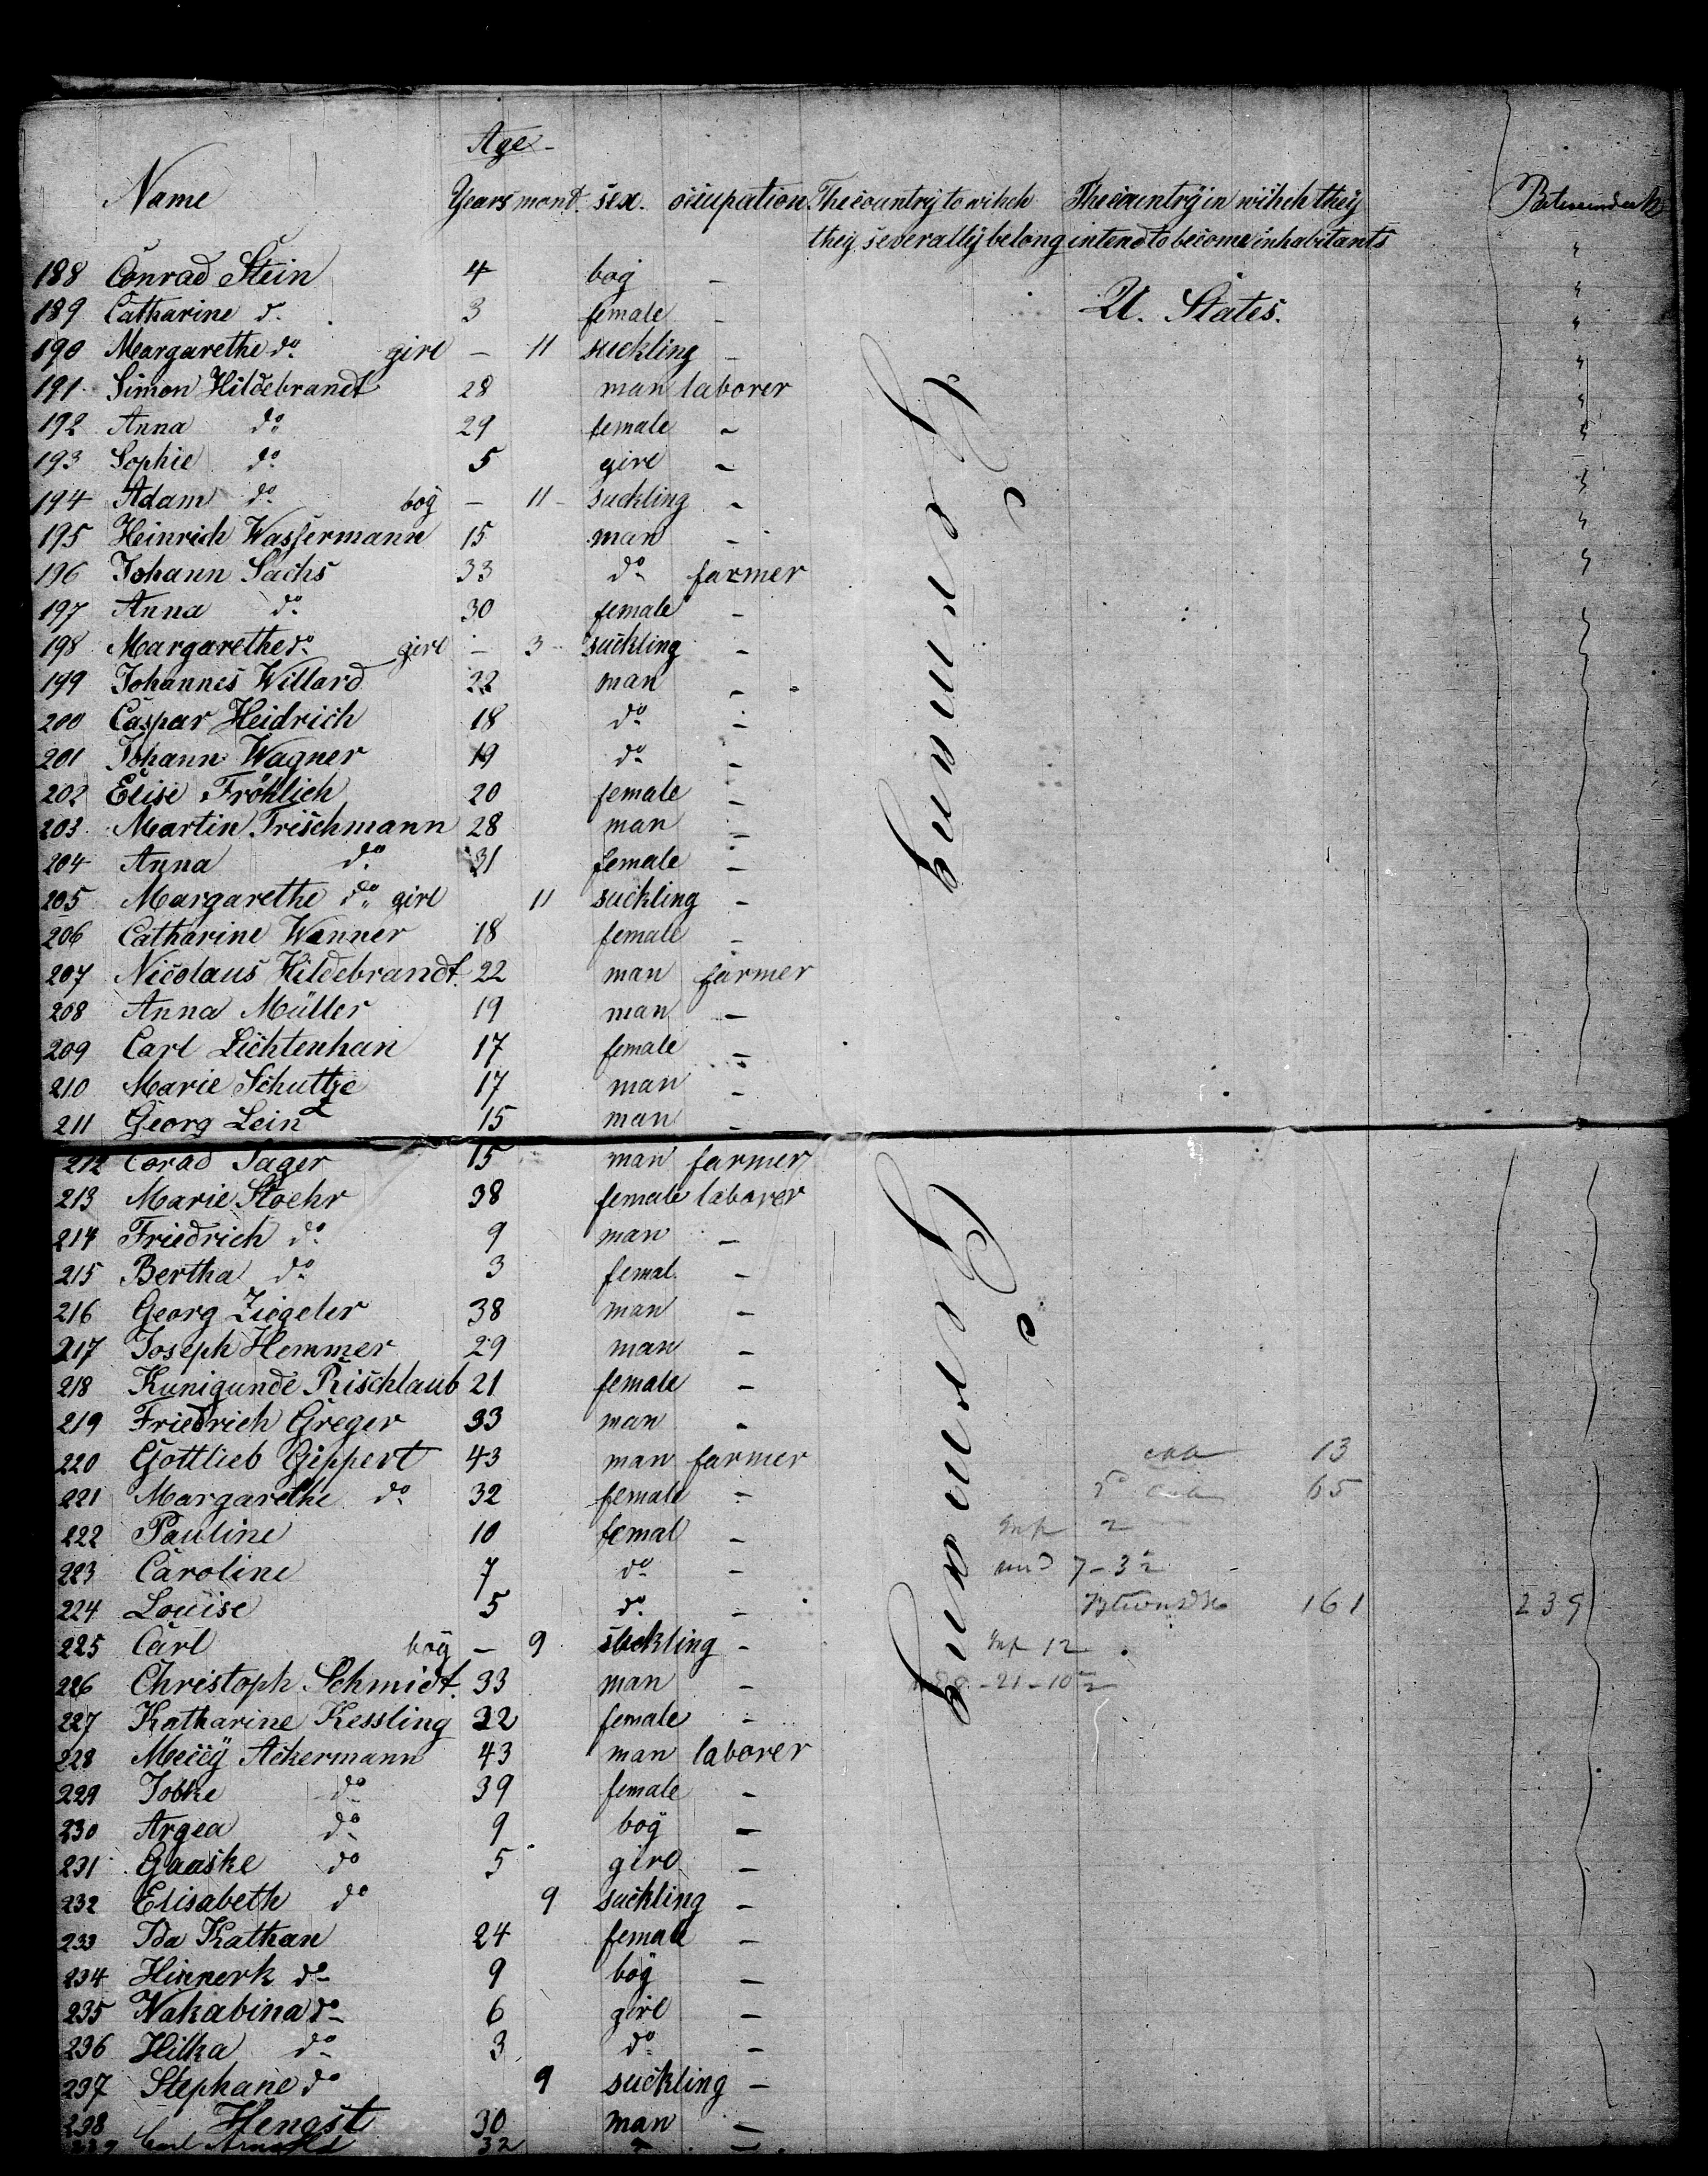 Age
Name Years mont. sex. occupation. The country to witch The country in witch they
they severally belong intend to become inhabitants
188 Conrad Stein 4 boy –
189 Catharine do 3 female – U. States.
190 Margarethe do girl – 11 suckling –
191 Simon Hildebrandt 28 man laborer
192 Anna do 29 female –
193 Sophie do 5 girl –
194 Adam do boy – 11 suckling –
195 Heinrich Wassermann 15 man –
196 Johann Sachs 33 do farmer
197 Anna do 30 female –
198 Margarethe do girl – 3 suckling –
199 Johannes Willard 22 man –
200 Caspar Heidrich 18 do –
201 Johann Wagner 19 do –
202 Elise Fröhlich 20 female –
203 Martin Trischmann 28 man –
204 Anna do 31 female –
205 Margarethe do girl 11 suckling –
206 Catharine Wanner 18 female –
207 Nicolaus Hildebrandt. 22 man farmer
208 Anna Müller 19 man –
209 Carl Lichtenhan 17 female –
210 Marie Schultze 17 man –
211 Georg Lein 15 man –
Germany
212 Corad Jager 15 man farmer
213 Marie Stoehr 38 female laborer
214 Friedrich do 9 man –
215 Bertha do 3 femal –
216 Georg Ziegeler 38 man –
217 Joseph Hemmer 29 man –
218 Kunigunde Rischlaub 21 female –
219 Friedrich Greger 33 man –
220 Gottlieb Geppert 43 man farmer 13
221 Margarethe do 32 female – 65
222 Pauline 10 femal – Inf 2
223 Caroline 7 do – 7-3½
224 Louise 5 do – 161 239
225 Carl boy – 9 suckling – Inf 12
226 Christoph Schmidt. 33 man – -21-10½
227 Katharine Kessling 32 female –
228 Meccÿ Ackermann 43 man laborer
229 Jobke do 39 female –
230 Argea do 9 boy –
231 Gaaske do 5 girl –
232 Elisabeth do 9 suckling –
233 Ida Kathan 24 female –
234 Hinnerk do 9 boy –
235 Nakabina do 6 girl –
236 Hilka do 3 do –
237 Stephane do 9 suckling –
238 Hengst 30 man –
239 Carl Arnold 32 –
Germany